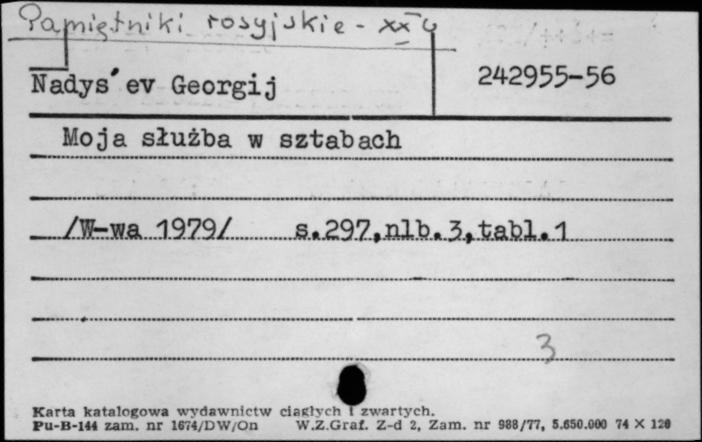 Pamiętniki rosyjskie - XX w
Nadys'ev Georgij
242955-56
Moja służba w sztabach
/W-wa 1979/ s.297,nlb.3,tabl.1
3
Karta katalogowa wydawnictw ciągłych i zwartych.
Pu-B-144 zam. nr 1674/DW/On W.Z.Graf. Z-d 2, Zam. nr 988/77, 5.650.000 74 X 120